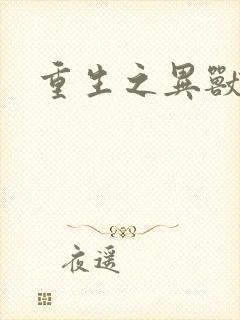 重生之異獸
夜遥